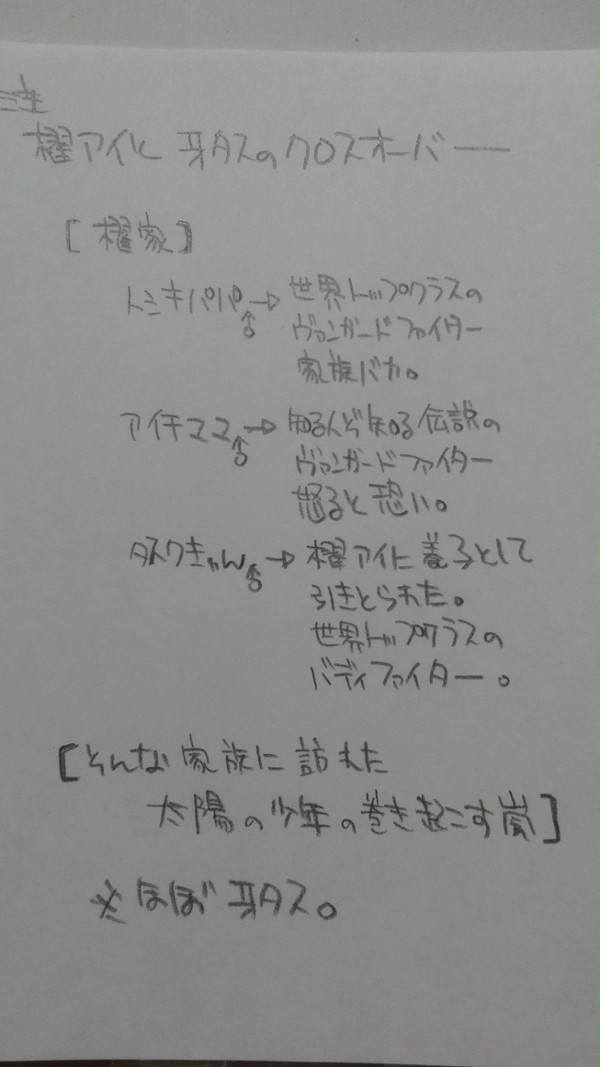 注
櫂アイと牙タスのクロスオーバー
[櫂家]
トシキパパ♂→世界トップクラスの
ヴァンガードファイター
家族バカ。
アイチママ♂→知る人ぞ知る伝説の
ヴァンガードファイター
怒ると恐い。
タスクきゅん♂→櫂アイに養子として
引きとられた。
世界トップクラスの
バディファイター。
[そんな家族に訪れた
太陽の少年の巻き起こす嵐]
※ほぼ牙タス。